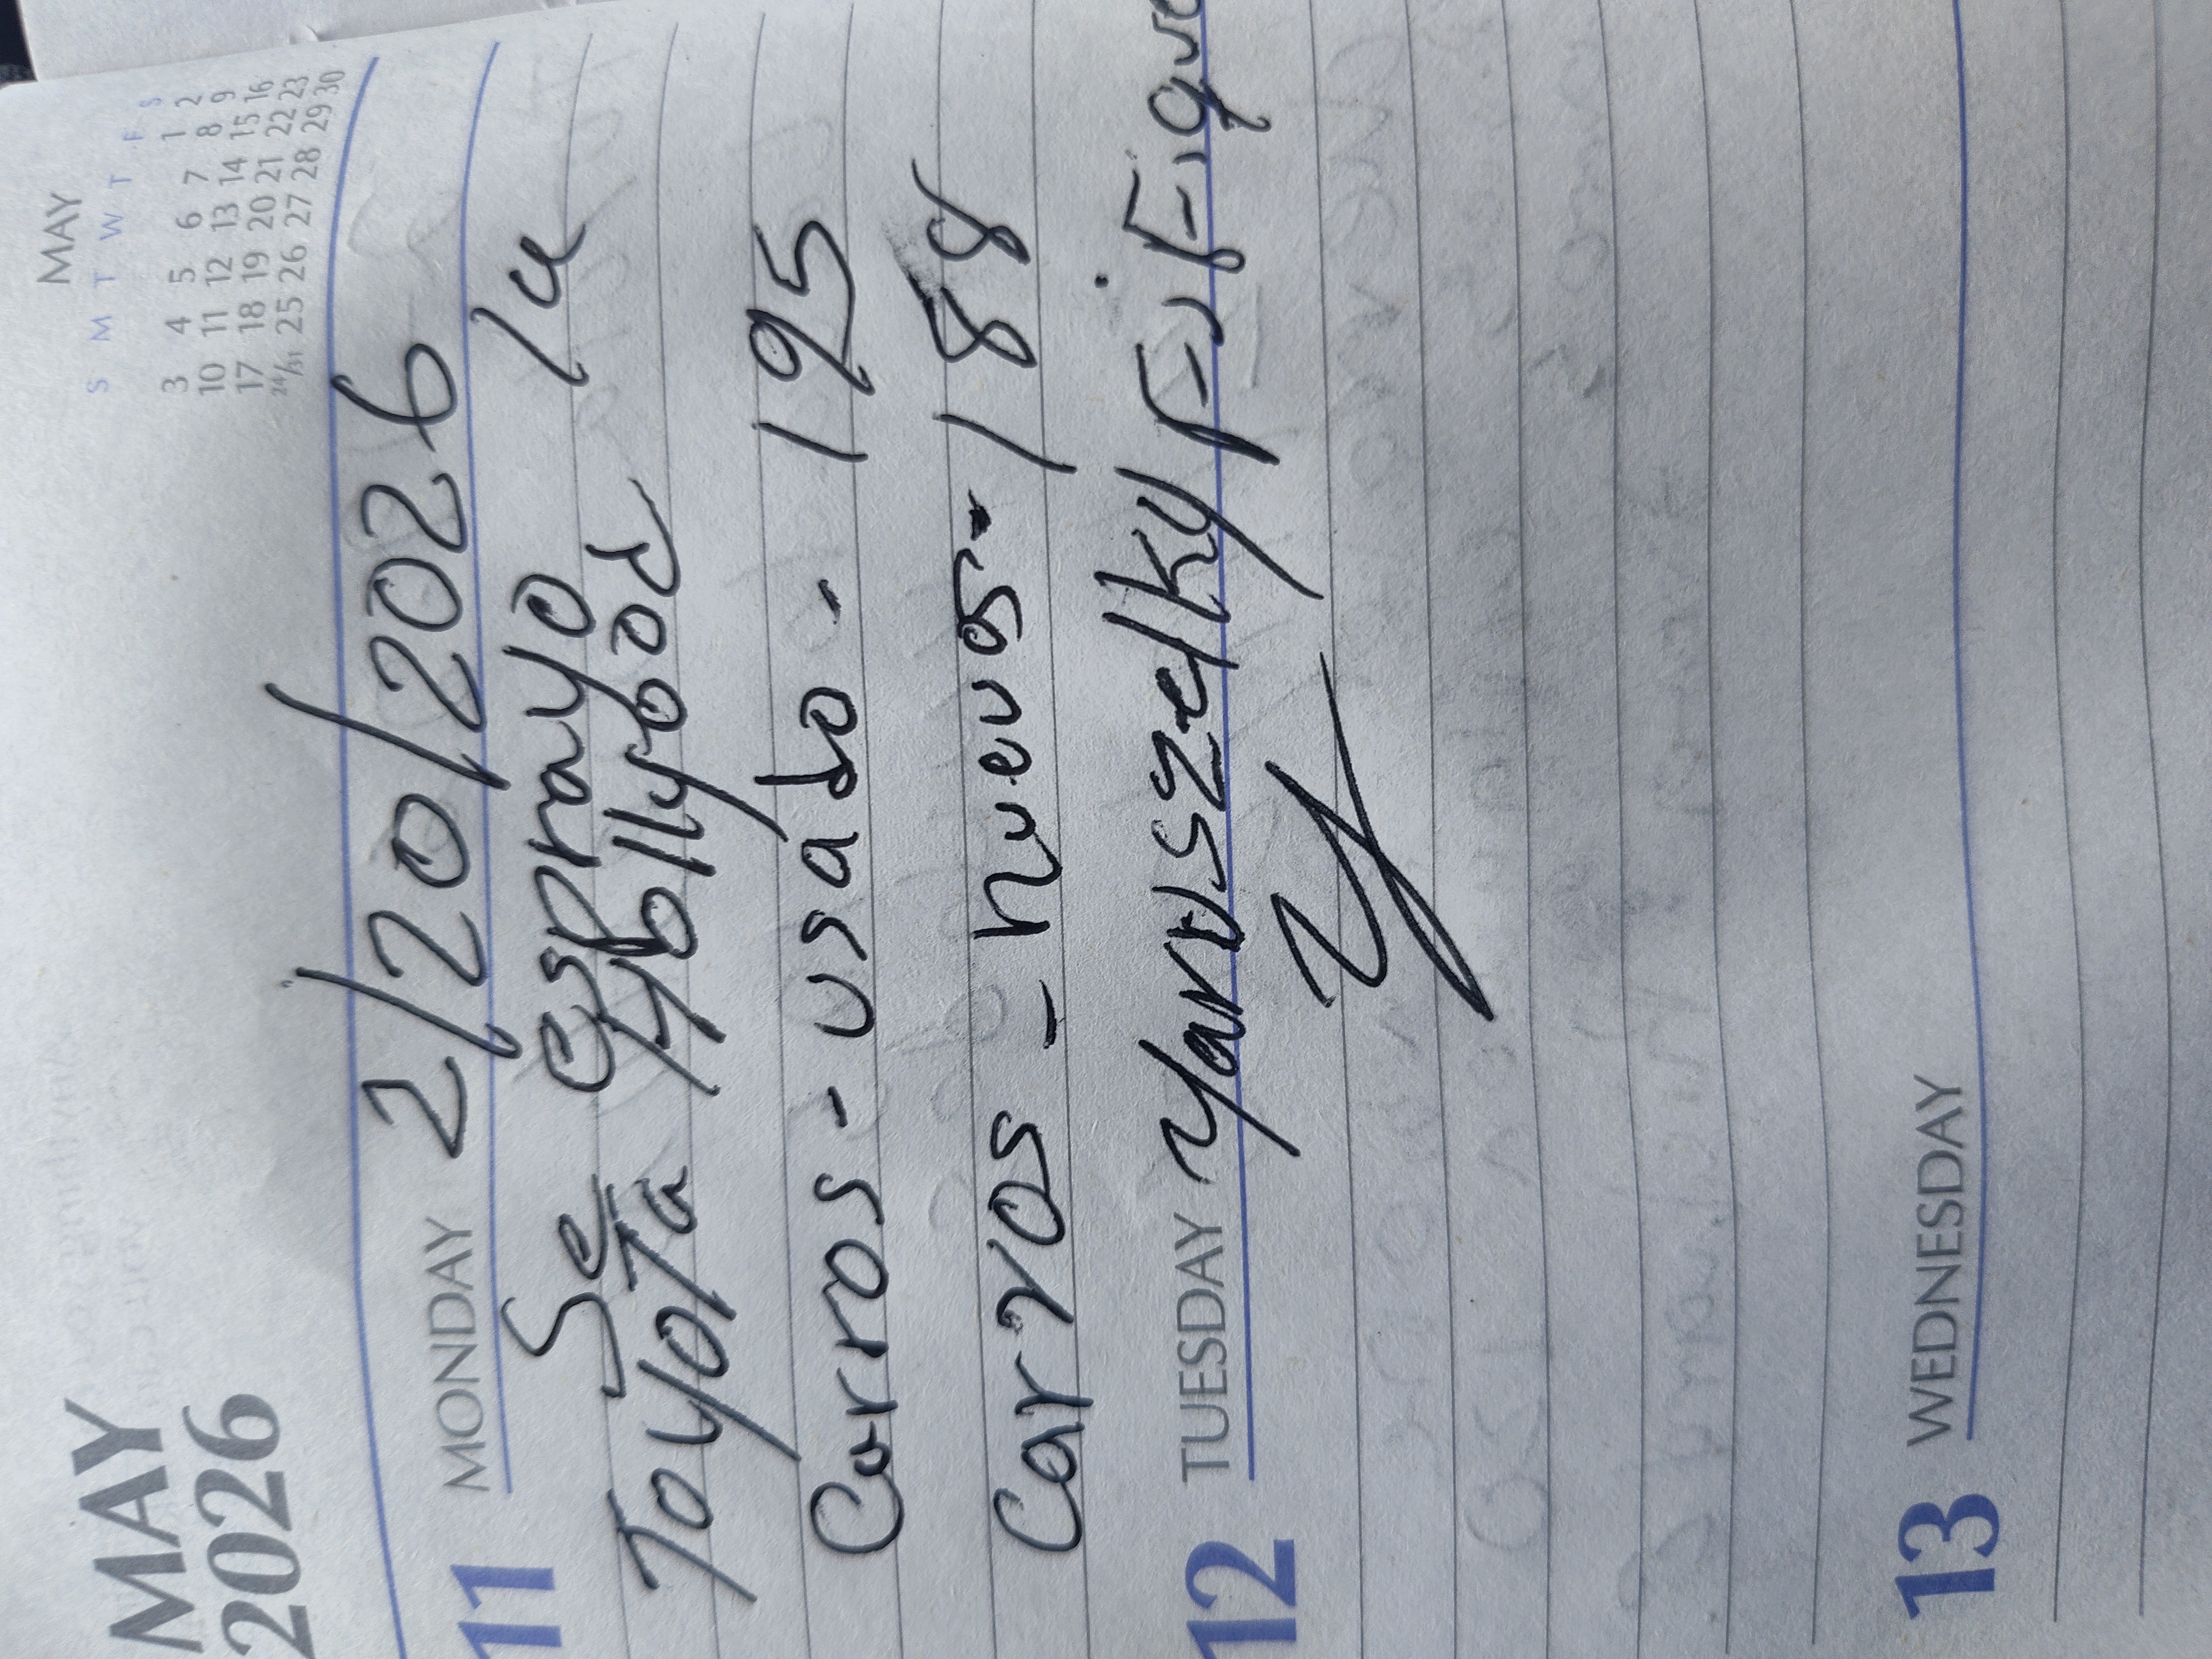 MAY
2026
MAY
S M T W T F S
1 2
3 4 5 6 7 8 9
10 11 12 13 14 15 16
17 18 19 20 21 22 23
24/31 25 26 27 28 29 30
11 MONDAY 2/20/2026
Se esprayo la
ToyoTa Hollybod
Carros - usado - 195
Carros - nuevos - 188
12 TUESDAY Yaruszelky
13 WEDNESDAY